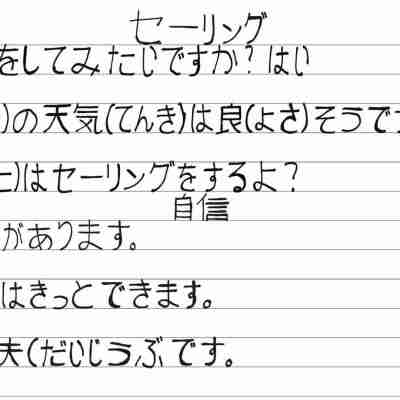 セーリング
をしてみたいですか？はい
)の天気(てんき)は良(よさ)そうで
)はセーリングをするよ？
自信
があります。
はきっとできます。
夫(だいじうぶです。